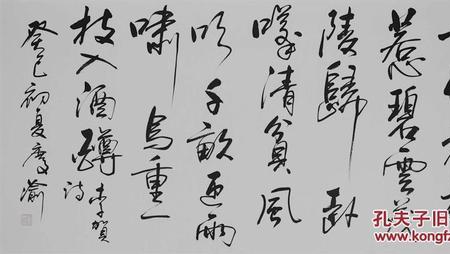 惹碧雲茂
陵歸卧
嘆清貧風
吹千畝迎雨
嘯鳥重一
枝入酒罇
李賀
詩
癸巳初夏
孔夫子旧
kongfz